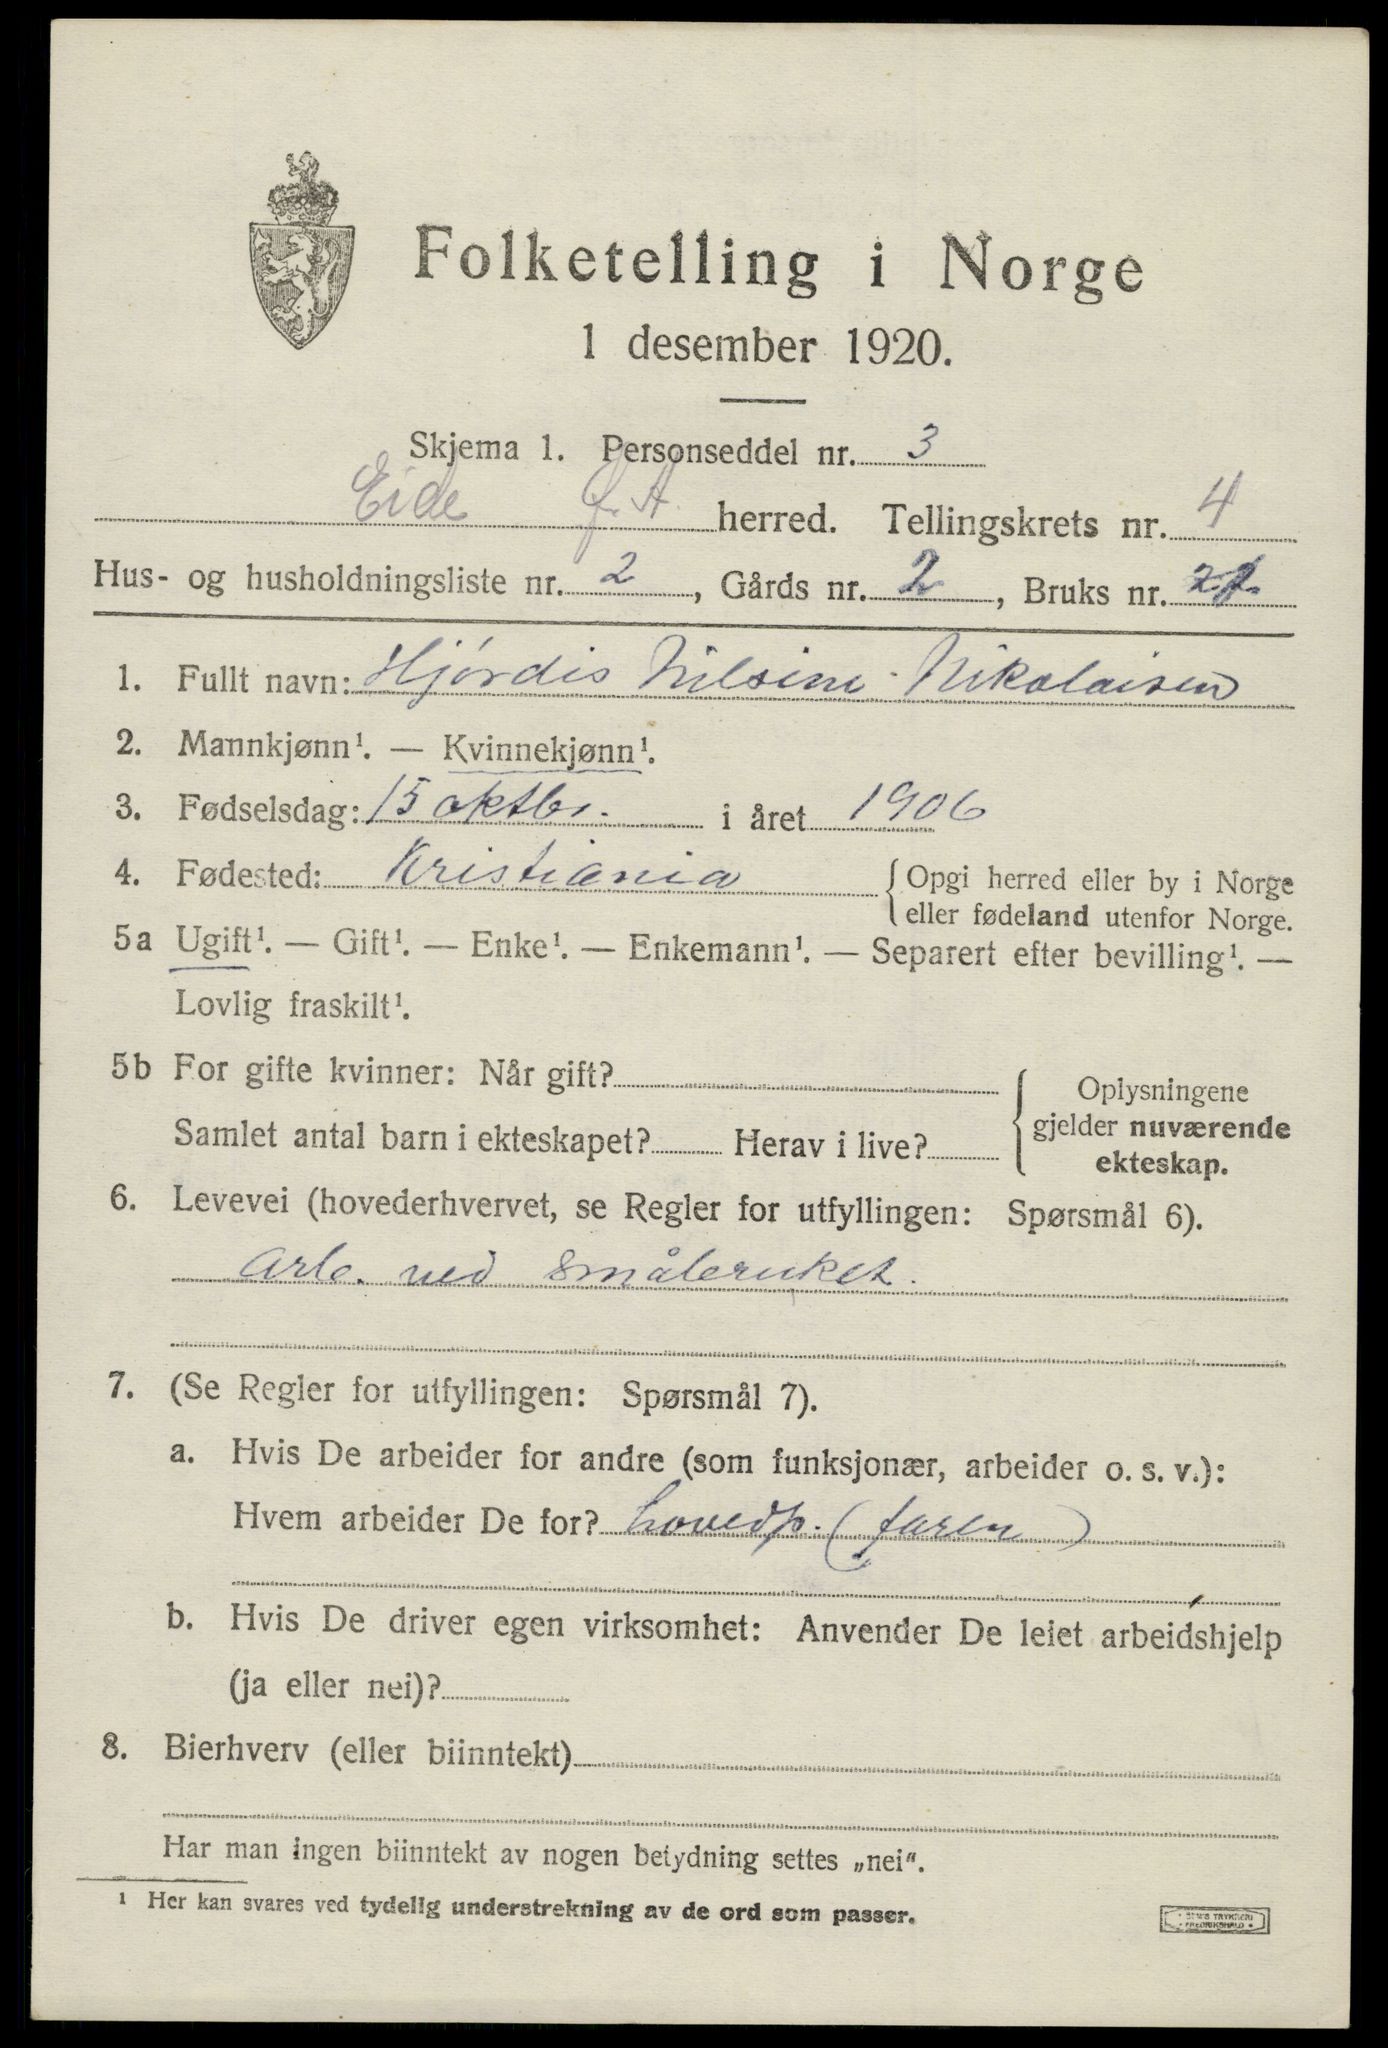 Folketelling i Norge
1 desember 1920.
Skjema 1. Personseddel nr. 3
Eide herred. Tellingskrets nr. 4
Hus- og husholdningsliste nr. 2, Gårds nr. 2, Bruks nr.
1. Fullt navn: Hjørdis Nilsine Nikolaisen
2. Mannkjønn¹. — Kvinnekjønn¹.
3. Fødselsdag: 15 oktbr. i året 1906
4. Fødested: Kristiania { Opgi herred eller by i Norge
eller fødeland utenfor Norge.
5a Ugift¹. — Gift¹. — Enke¹. — Enkemann¹. — Separert efter bevilling¹. —
Lovlig fraskilt¹.
5b For gifte kvinner: Når gift?
Samlet antal barn i ekteskapet? Herav i live?
{ Oplysningene
gjelder nuværende
ekteskap.
6. Levevei (hovederhvervet, se Regler for utfyllingen: Spørsmål 6).
Arb. ved småbruket.
7. (Se Regler for utfyllingen: Spørsmål 7).
a. Hvis De arbeider for andre (som funksjonær, arbeider o. s. v.):
Hvem arbeider De for? hovedp. (faren)
b. Hvis De driver egen virksomhet: Anvender De leiet arbeidshjelp
(ja eller nei)?
8. Bierhverv (eller biinntekt)
Har man ingen biinntekt av nogen betydning settes „nei".
¹ Her kan svares ved tydelig understrekning av de ord som passer.
TRYKKERI
FREDRIKSHALD